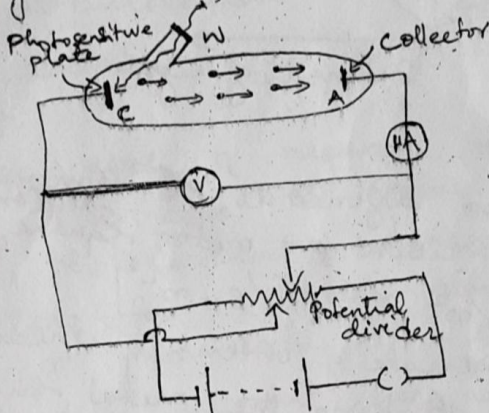 photosensitive
plate
W
Collector
C
A
μA
V
Potential
divider